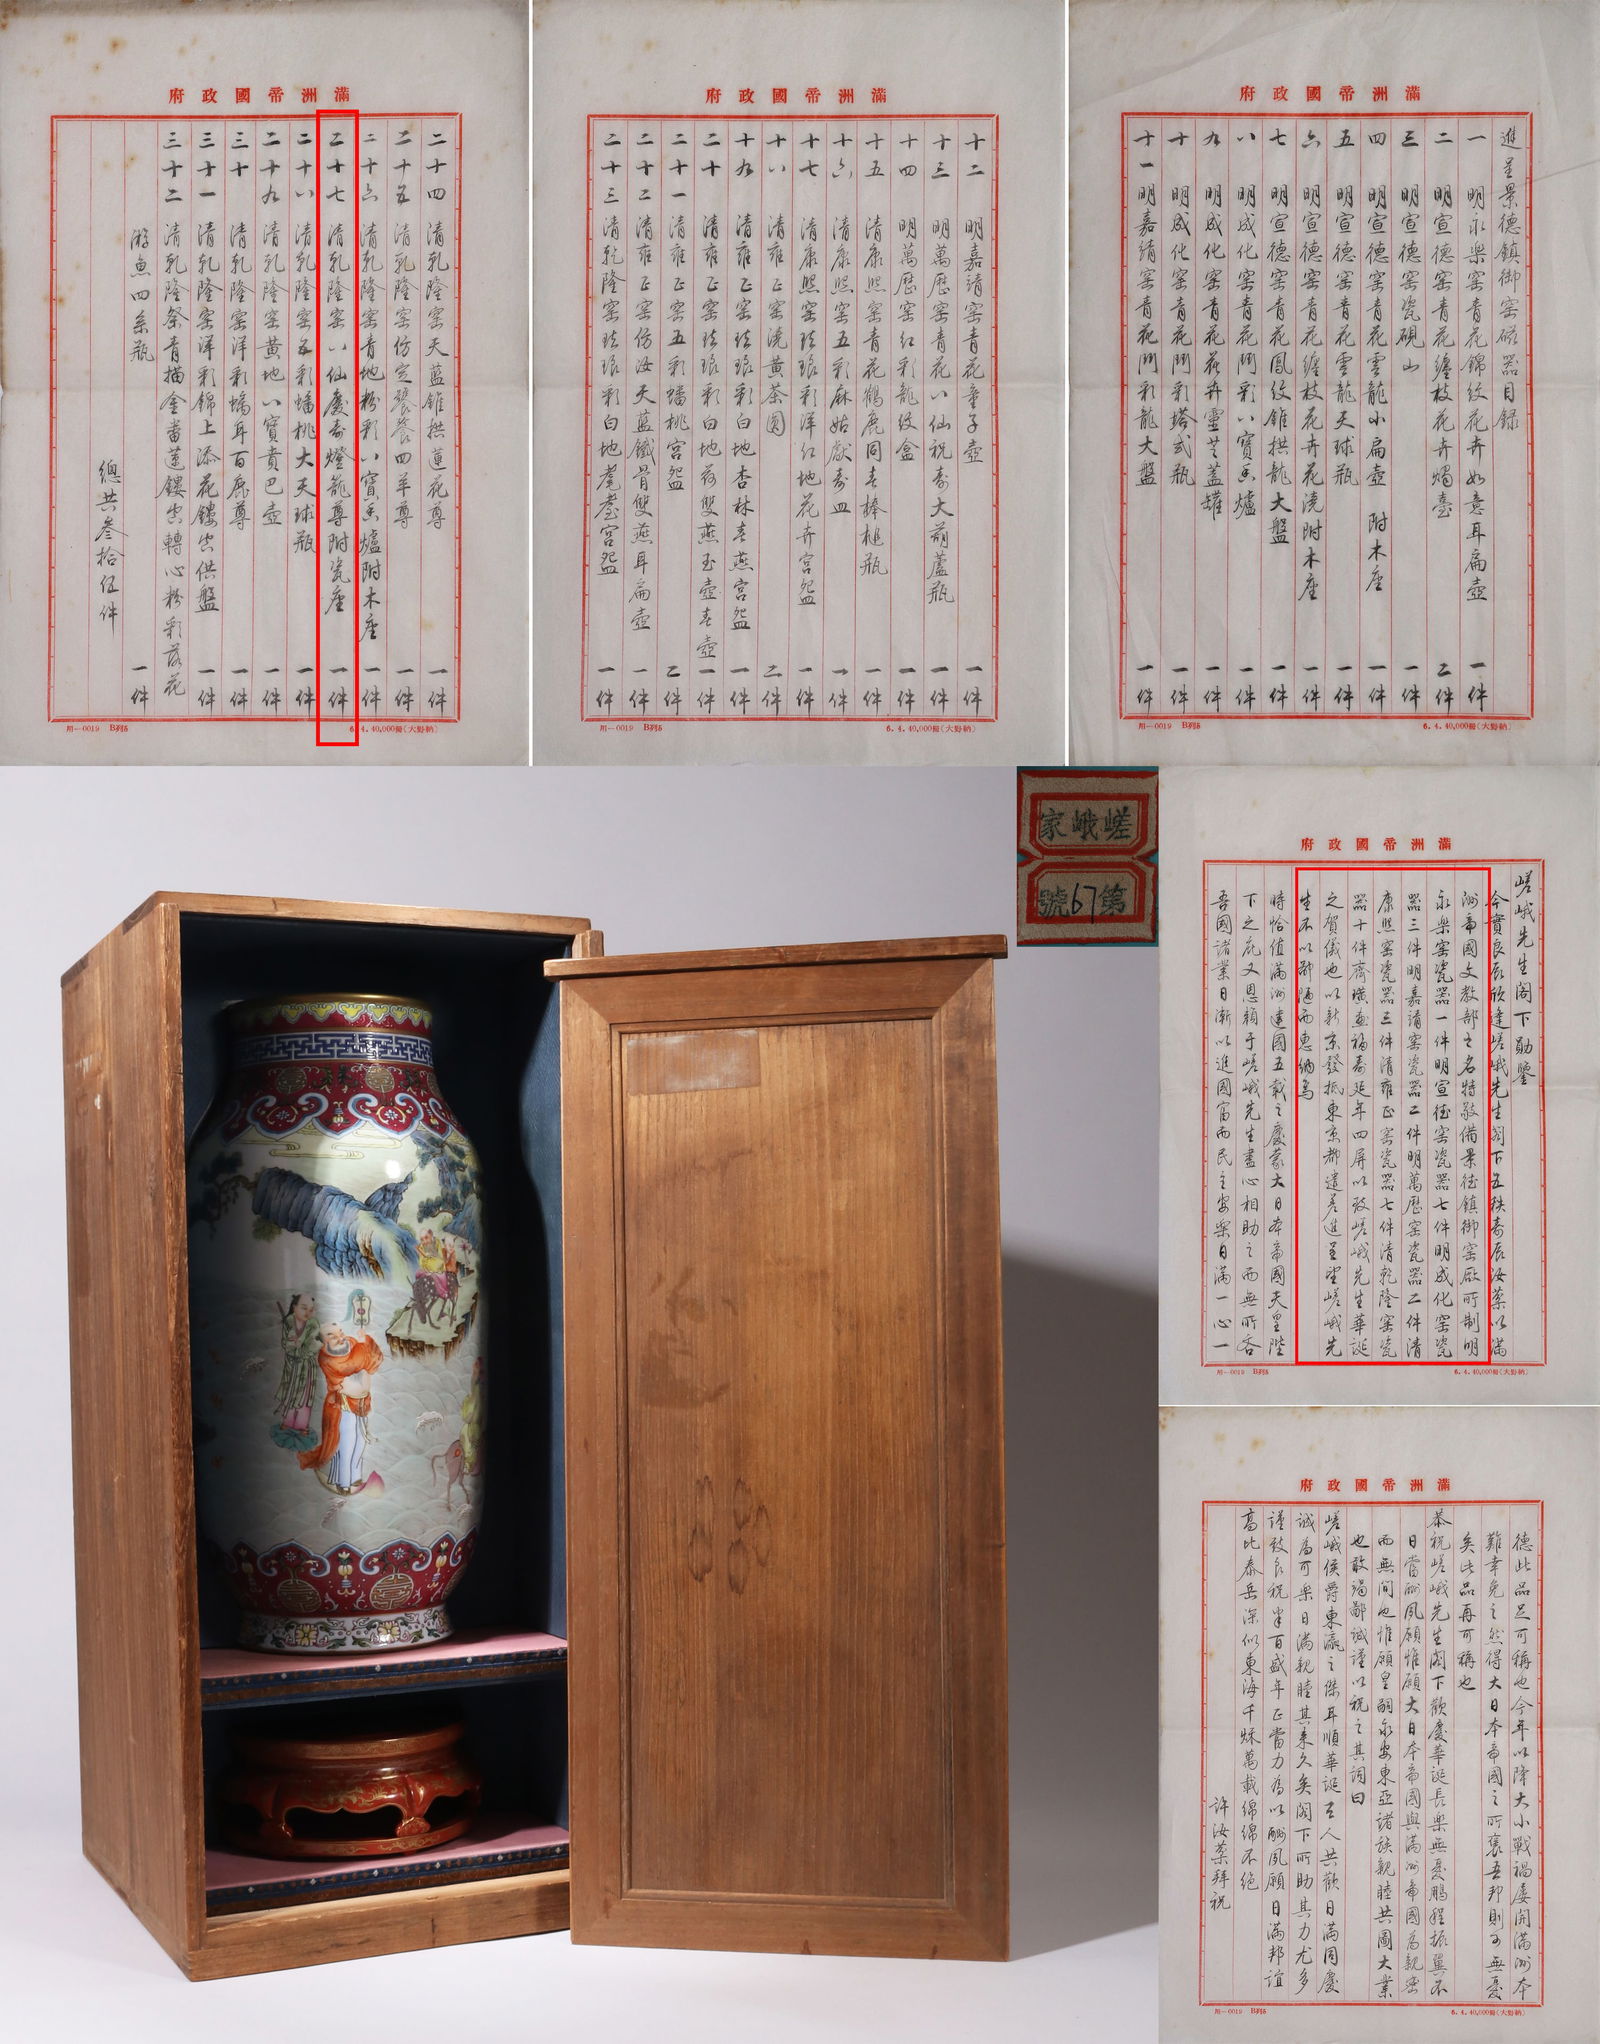 滿洲帝國政府
進呈景德鎮御窑磁器目録
一 明永樂窑青花錦紋花卉如意耳扁壺 一件
二 明宣德窑青花纏枝花卉燭臺 二件
三 明宣德窑瓷硯山 一件
四 明宣德窑青花雲龍小扁壺 附木座 一件
五 明宣德窑青花雲龍天球瓶 一件
六 明宣德窑青花纏枝花卉花澆附木座 一件
七 明宣德窑青花鳳紋錐拱龍大盤 一件
八 明成化窑青花鬥彩八寶香爐 一件
九 明成化窑青花花卉靈芝蓋罐 一件
十 明成化窑青花鬥彩塔式瓶 一件
十一 明嘉靖窑青花鬥彩龍大盤 一件
用—0019 B列5
6.4.40,000冊(大野納)
滿洲帝國政府
十二 明嘉靖窑青花童子壺 一件
十三 明萬歷窑青花八仙祝壽大葫蘆瓶 一件
十四 明萬歷窑紅彩龍紋盒 一件
十五 清康熙窑青花鶴鹿同春棒槌瓶 一件
十六 清康熙窑五彩麻姑獻壽皿 一件
十七 清康熙窑琺琅彩洋紅地花卉宫盌 一件
十八 清雍正窑澆黃茶圓 二件
十九 清雍正窑琺琅彩白地杏林春燕宫盌 一件
二十 清雍正窑琺琅彩白地荷雙燕玉壺春壺 一件
二十一 清雍正窑五彩蟠桃宫盌 二件
二十二 清雍正窑仿汝天藍鐵骨雙燕耳扁壺 一件
二十三 清乾隆窑琺琅彩白地耄耋宫盌 一件
用—0019 B列5
6.4.40,000冊(大野納)
滿洲帝國政府
二十四 清乾隆窑天藍錐拱蓮花尊 一件
二十五 清乾隆窑仿定饕餮四羊尊 一件
二十六 清乾隆窑青地粉彩八寶香爐附木座 一件
二十七 清乾隆窑八仙慶壽燈籠尊附瓷座 一件
二十八 清乾隆窑五彩蟠桃大天球瓶 一件
二十九 清乾隆窑黃地八寶賁巴壺 一件
三十 清乾隆窑洋彩蟠耳百鹿尊 一件
三十一 清乾隆窑洋彩錦上添花鏤空供盤 一件
三十二 清乾隆祭青描金番蓮鏤空轉心粉彩落花
游魚四系瓶 一件
總共叁拾伍件
用—0019 B列5
6.4.40,000冊(大野納)
嵯峨家
第67號
滿洲帝國政府
嵯峨先生閣下勛鑒
今實良辰欣逢嵯峨先生閣下五秩壽辰汝棻以滿
洲帝國文教部之名特敬備景德鎮御窑廠所制明
永樂窑瓷器一件明宣德窑瓷器七件明成化窑瓷
器三件明嘉靖窑瓷器二件明萬歷窑瓷器二件清
康熙窑瓷器三件清雍正窑瓷器七件清乾隆窑瓷
器十件齊璜畫福壽延年四屏以致嵯峨先生華誕
之賀儀也以新京發抵東京都遣差進呈望嵯峨先
生不以鄙陋而惠納焉
時恰值滿洲建國五載之慶蒙大日本帝國天皇陛
下之庇又恩賴于嵯峨先生盡心相助之而無所吝
吾國諸業日漸以進國富而民主安樂日滿一心一
用—0019 B列5
6.4.40,000冊(大野納)
滿洲帝國政府
德此品足可稱也今年以降大小戰禍屡開滿洲本
難幸免之然得大日本帝國之所褒吾邦則可無憂
矣此品再可稱也
恭祝嵯峨先生閣下歡慶華誕長樂無憂鵬程振翼不
日當酬夙願惟願大日本帝國與滿洲帝國爲親密
而無間也惟願皇嗣永安東亞諸族親睦共圖大業
也敢竭鄙誠謹以祝之其詞曰
嵯峨侯爵東瀛之傑耳順華誕三人共歡日滿同慶
誠爲可樂日滿親睦其來久矣閣下所助其力尤多
謹致良祝半百盛年正當力爲以酬夙願日滿邦誼
高比泰岳深似東海千秋萬載綿綿不絕
許汝棻拜祝
用—0019 B列5
6.4.40,000冊(大野納)